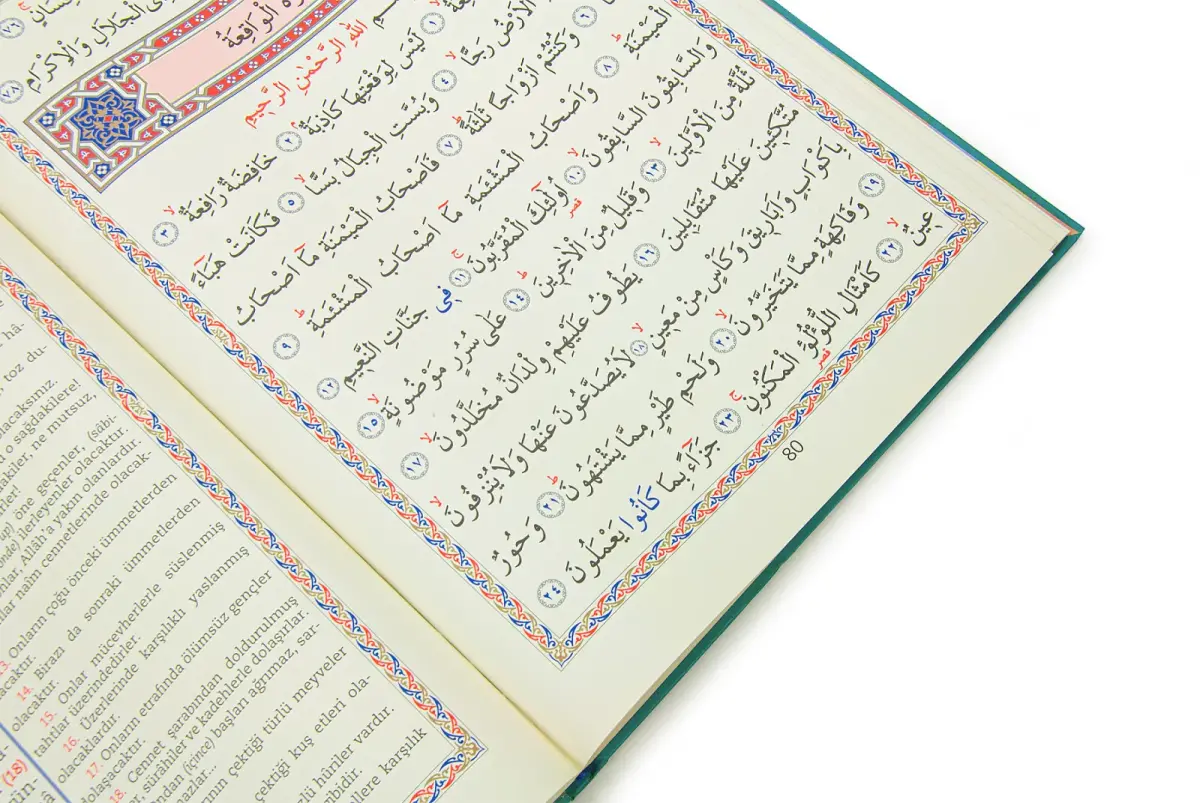 ٧٦
الْجَلَالِ وَالْاِكْرَامِ ٧٨
الْوَاقِعَةُ
اللّٰهِ الرَّحْمٰنِ الرَّحِيمِ
١ لَيْسَ لِوَقْعَتِهَا كَاذِبَةٌ ٢ خَافِضَةٌ رَافِعَةٌ ٣
الْاَرْضُ رَجًّا ٤ وَبُسَّتِ الْجِبَالُ بَسًّا ٥ فَكَانَتْ هَبَآءً
٦ وَكُنْتُمْ اَزْوَاجًا ثَلٰثَةً ٧ فَاَصْحَابُ الْمَيْمَنَةِ مَآ اَصْحَابُ
الْمَيْمَنَةِ ٨ وَاَصْحَابُ الْمَشْئَمَةِ مَآ اَصْحَابُ الْمَشْئَمَةِ ٩
وَالسَّابِقُونَ السَّابِقُونَ ١٠ اُولٰٓئِكَ الْمُقَرَّبُونَ ١١ فِى جَنَّاتِ النَّعِيمِ ١٢
ثُلَّةٌ مِنَ الْاَوَّلِينَ ١٣ وَقَلِيلٌ مِنَ الْاٰخِرِينَ ١٤ عَلٰى سُرُرٍ مَوْضُونَةٍ ١٥
مُتَّكِئِينَ عَلَيْهَا مُتَقَابِلِينَ ١٦ يَطُوفُ عَلَيْهِمْ وِلْدَانٌ مُخَلَّدُونَ ١٧
بِاَكْوَابٍ وَاَبَارِيقَ وَكَأْسٍ مِنْ مَعِينٍ ١٨ لَا يُصَدَّعُونَ عَنْهَا وَلَا يُنْزِفُونَ
١٩ وَفَاكِهَةٍ مِمَّا يَتَخَيَّرُونَ ٢٠ وَلَحْمِ طَيْرٍ مِمَّا يَشْتَهُونَ ٢١ وَحُورٌ
عِينٌ ٢٢ كَاَمْثَالِ اللُّؤْلُؤِ الْمَكْنُونِ ٢٣ جَزَآءً بِمَا كَانُوا يَعْمَلُونَ ٢٤
80
hâ-
toz du-
olacaksınız.
o sağdakiler!
dakiler, ne mutsuz,
öne geçenler, (sâbi-
ilerleyenler olacaktır.
Allâh'a yakın olanlardır.
naîm cennetlerinde olacak-
13. Onların çoğu önceki ümmetlerden
olacaktır.
14. Birazı da sonraki ümmetlerden
olacaktır.
15. Onlar mücevherlerle süslenmiş
tahtlar üzerindedirler.
16. Üzerlerinde karşılıklı yaslanmış
olacaklardır.
17. Onların etrafında ölümsüz gençler
dolaşacaktır.
18. Cennet şarabından doldurulmuş
sürâhiler ve kadehlerle dolaşırlar.
(içince) başları ağrımaz, sar-
çektiği türlü meyveler
çektiği kuş etleri ola-
hûriler vardır.
karşılık
(18)